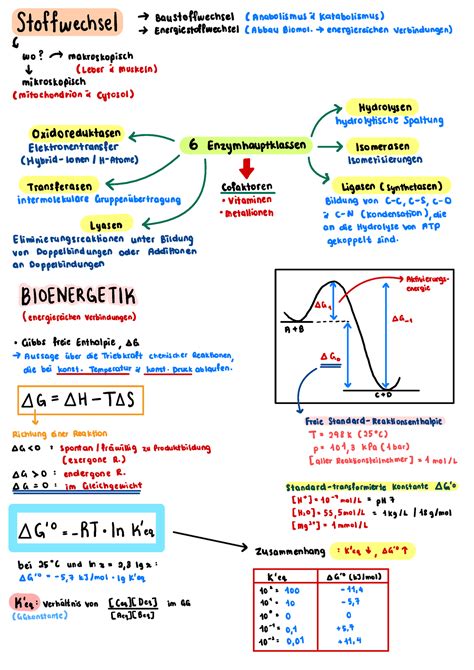 Stoffwechsel
→ Baustoffwechsel (Anabolismus & Katabolismus)
→ Energiestoffwechsel (Abbau Biomol. → energiereichen Verbindungen)
wo? → makroskopisch
(Leber & Muskeln)
mikroskopisch
(mitochondrion & Cytosol)
6 Enzymhauptklassen
Oxidoreduktasen
Elektronentransfer
(Hybrid-Ionen / H-Atome)
Transferasen
intermolekulare Gruppenübertragung
Lyasen
Eliminierungsreaktionen unter Bildung
von Doppelbindungen oder Additionen
an Doppelbindungen
Cofaktoren
• Vitaminen
• Metallionen
Hydrolysen
hydrolytische Spaltung
Isomerasen
Isometisierungen
Ligasen (Synthetasen)
Bildung von C-C, C-S, C-O
& C-N (Kondensation), die
an die Hydrolyse von ATP
gekoppelt sind.
BIOENERGETIK
(energiereichen Verbindungen)
• Gibbs freie Enthalpie, ΔG
→ Aussage über die Triebkraft chemischer Reaktionen,
die bei konst. Temperatur & konst. Druck ablaufen.
ΔG = ΔH - TΔS
Richtung einer Reaktion
ΔG < 0 : spontan / freiwillig zu Produktbildung
(exergone R.)
ΔG > 0 : endergone R.
ΔG = 0 : im Gleichgewicht
ΔG'° = -RT · ln K'eq
bei 25°C und ln x = 2,3 lg x :
ΔG'° = -5,7 kJ/mol · lg K'eq
K'eq : Verhältnis von [Ceq][Deq] / [Aeq][Beq] im GG
(GGkonstante)
Aktivierungs-
energie
ΔG₁
ΔG₋₁
A + B
ΔG₀
C + D
Freie Standard-Reaktionsenthalpie
T = 298 K (25°C)
p = 101,3 kPa (1 bar)
[aller Reaktionsteilnehmer] = 1 mol/L
Standard-transformierte Konstante ΔG'°
[H⁺] = 10⁻⁷ mol/L = pH 7
[H₂O] = 55,5 mol/L = 1kg/L / 18g/mol
[Mg²⁺] = 1 mmol/L
Zusammenhang : K'eq ↓, ΔG'° ↑
K'eq ΔG'° (kJ/mol)
10² = 100 -11,4
10¹ = 10 -5,7
10⁰ = 1 0
10⁻¹ = 0,1 +5,7
10⁻² = 0,01 +11,4